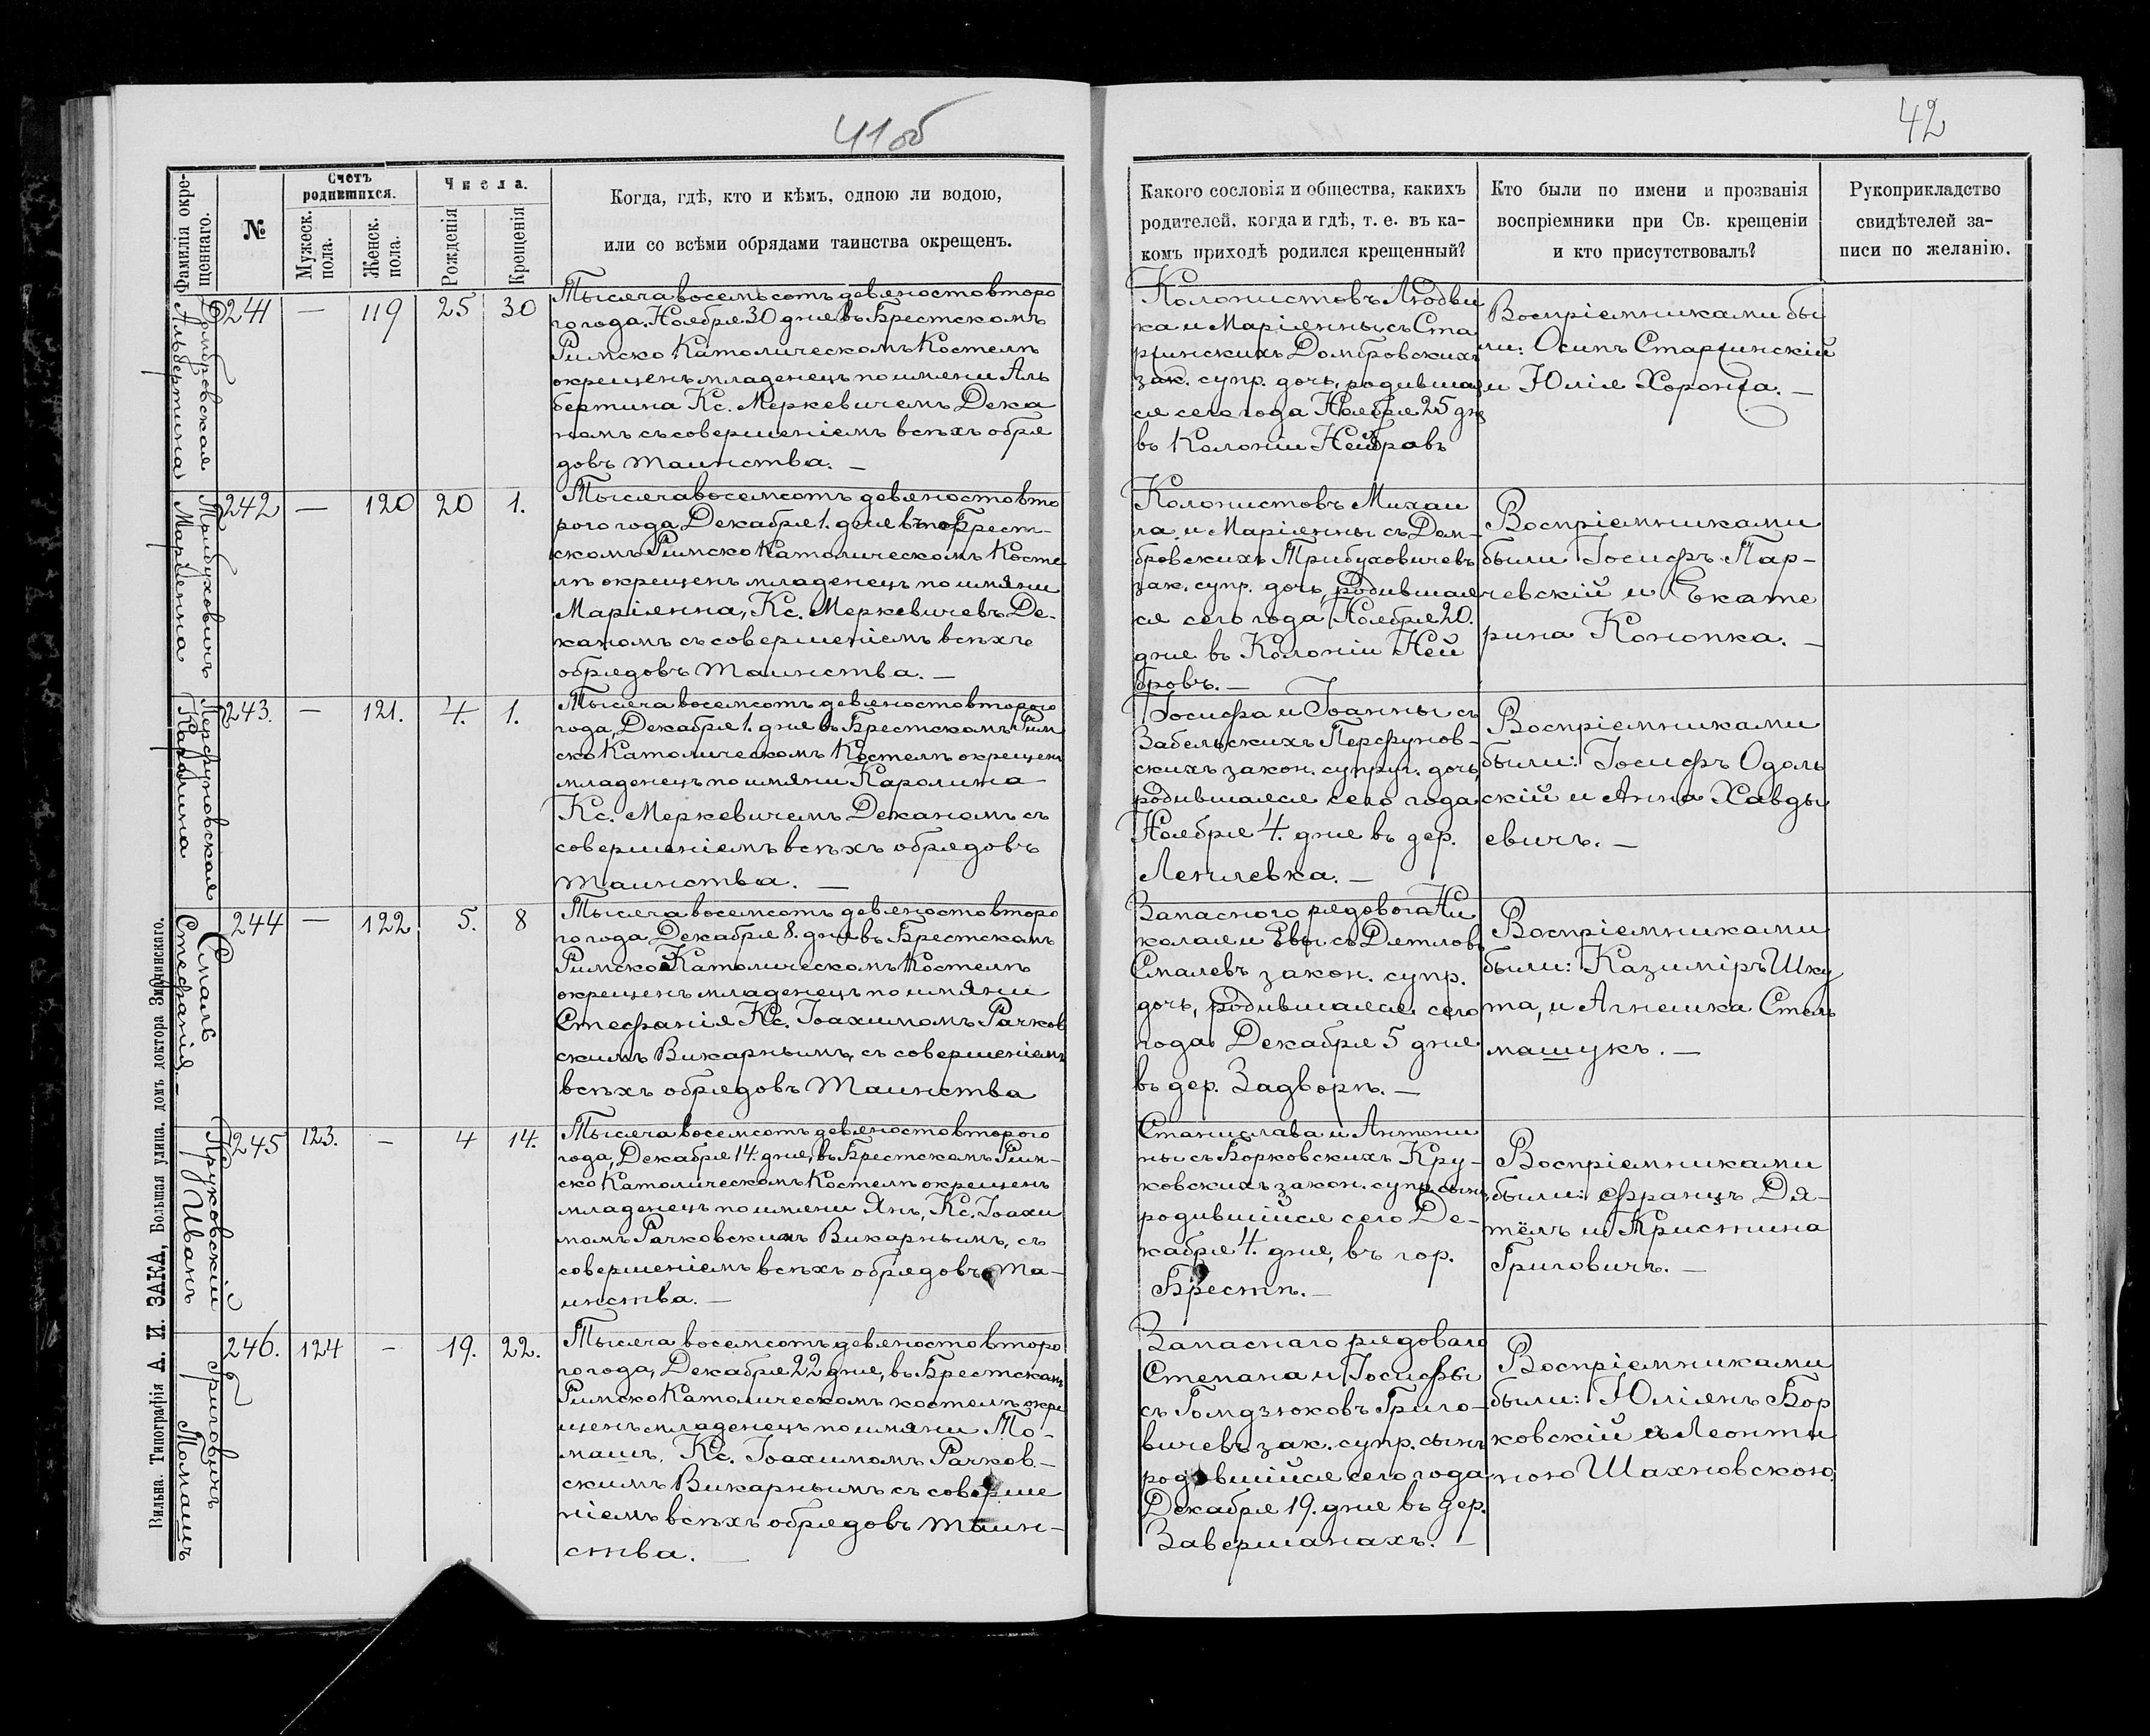 41об
42
Фамилія и имя окрещеннаго.
№
Счетъ родившихся.
Мужеск. пола.
Женск. пола.
Числа.
Рожденія
Крещенія
Когда, гдѣ, кто и кѣмъ, одною ли водою,
или со всѣми обрядами таинства окрещенъ.
Какого сословія и общества, какихъ
родителей, когда и гдѣ, т. е. въ ка-
комъ приходѣ родился крещенный?
Кто были по имени и прозванія
воспріемники при Св. крещеніи
и кто присутствовалъ?
Рукоприкладство
свидѣтелей за-
писи по желанію.
Домбровская
Альбертина
241 — 119 25 30
Тысяча восемьсотъ девяносто второ
го года. Ноября 30 дня въ Брестскомъ
Римско Католическомъ Костелѣ
окрещенъ младенецъ по имени Аль
бертина Кс. Меркевичемъ Дека
номъ съ совершеніемъ всѣхъ обря
довъ таинства. —
Колонистовъ Людви
ка и Маріянны съ Ста
ржинскихъ Домбровскихъ
зак. супр. дочь, родивша
яся сего года Ноября 25 дня
въ Колоніи Нейбровъ
Воспріемниками бы
ли: Осипъ Старжинскій
и Юлія Хоронжа. —
Трибуховичъ
Маріянна
242 — 120 20 1.
Тысяча восемсотъ девяносто вто
рого года Декабря 1. дня въ Брест-
скомъ Римско Католическомъ Косте
лѣ окрещенъ младенецъ по имяни
Маріянна, Кс. Меркевичевъ Де-
каномъ съ совершеніемъ всѣхъ
обрядовъ таинства. —
Колонистовъ Михаи
ла и Маріянны съ Дом-
бровскихъ Трибуховичевъ
зак. супр. дочь, родившая
ся сего года Ноября 20.
дня въ Колоніи Ней
бровъ. —
Воспріемниками
были Іосифъ Пар-
чевскій и Екате
рина Конопка. —
Перфуновская
Каролина
243. — 121. 4. 1.
Тысяча восемсотъ девяносто второго
года, Декабря 1. дня въ Брестскомъ Рим
ско Католическомъ Костелѣ окрещенъ
младенецъ по имяни Каролина
Кс. Меркевичемъ Деканомъ съ
совершеніемъ всѣхъ обрядовъ
таинства. —
Іосифа и Іоанны съ
Забельскихъ Перфунов-
скихъ закон. супруг. дочь,
родившаяся сего года
Ноября 4. дня въ дер.
Лениевка. —
Воспріемниками
были: Іосифъ Одоль
скій и Анна Хавды
евичъ. —
Смаль
Стефанія. —
244 — 122 5. 8
Тысяча восемсотъ девяносто второ
го года Декабря 8. дня въ Брестскомъ
Римско Католическомъ Костелѣ
окрещенъ младенецъ по имяни
Стефанія Кс. Іоахимомъ Рачков
скимъ Викарнымъ, съ совершеніемъ
всѣхъ обрядовъ таинства
Запасного рядового Ни
колая и Евы съ Дятловъ
Смалевъ закон. супр.
дочь, родившаяся сего
года Декабря 5 дня
въ дер. Задворѣ. —
Воспріемниками
были: Казиміръ Шку
та, и Агнешка Стель
машукъ. —
Круковскій
Иванъ
245 123. — 4 14.
Тысяча восемсотъ девяносто второго
года, Декабря 14. дня, въ Брестскомъ Рим-
ско Католическомъ Костелѣ окрещенъ
младенецъ по имени Янъ, Кс. Іоахи
момъ Рачковскимъ Викарнымъ, съ
совершеніемъ всѣхъ обрядовъ та-
инства. —
Станислава и Антони
ны съ Борковскихъ Кру-
ковскихъ закон. супр. сынъ
родившійся сего Де-
кабря 4. дня, въ гор.
Брестѣ. —
Воспріемниками
были: Францъ Дя-
тёлъ и Кристина
Григовичъ. —
Григовичъ
Томашъ
246. 124 — 19. 22.
Тысяча восемсотъ девяносто второ
го года, Декабря 22 дня, въ Брестскомъ
Римско Католическомъ костелѣ окре
щенъ младенецъ по имяни То-
машъ, Кс. Іоахимомъ Рачков-
скимъ Викарнымъ съ соверше
ніемъ всѣхъ обрядовъ таин-
ства. —
Запаснаго рядоваго
Степана и Іосифы
съ Гомдзюковъ Григо-
вичевъ зак. супр. сынъ
родившійся сего года
Декабря 19. дня въ дер.
Завершанахъ. —
Воспріемниками
были: Юліянъ Бор
ковскій и Леонти
ною Шахновскою.
Вильна. Типографія А. И. ЗАКА, Большая улица, домъ доктора Зирдинскаго.